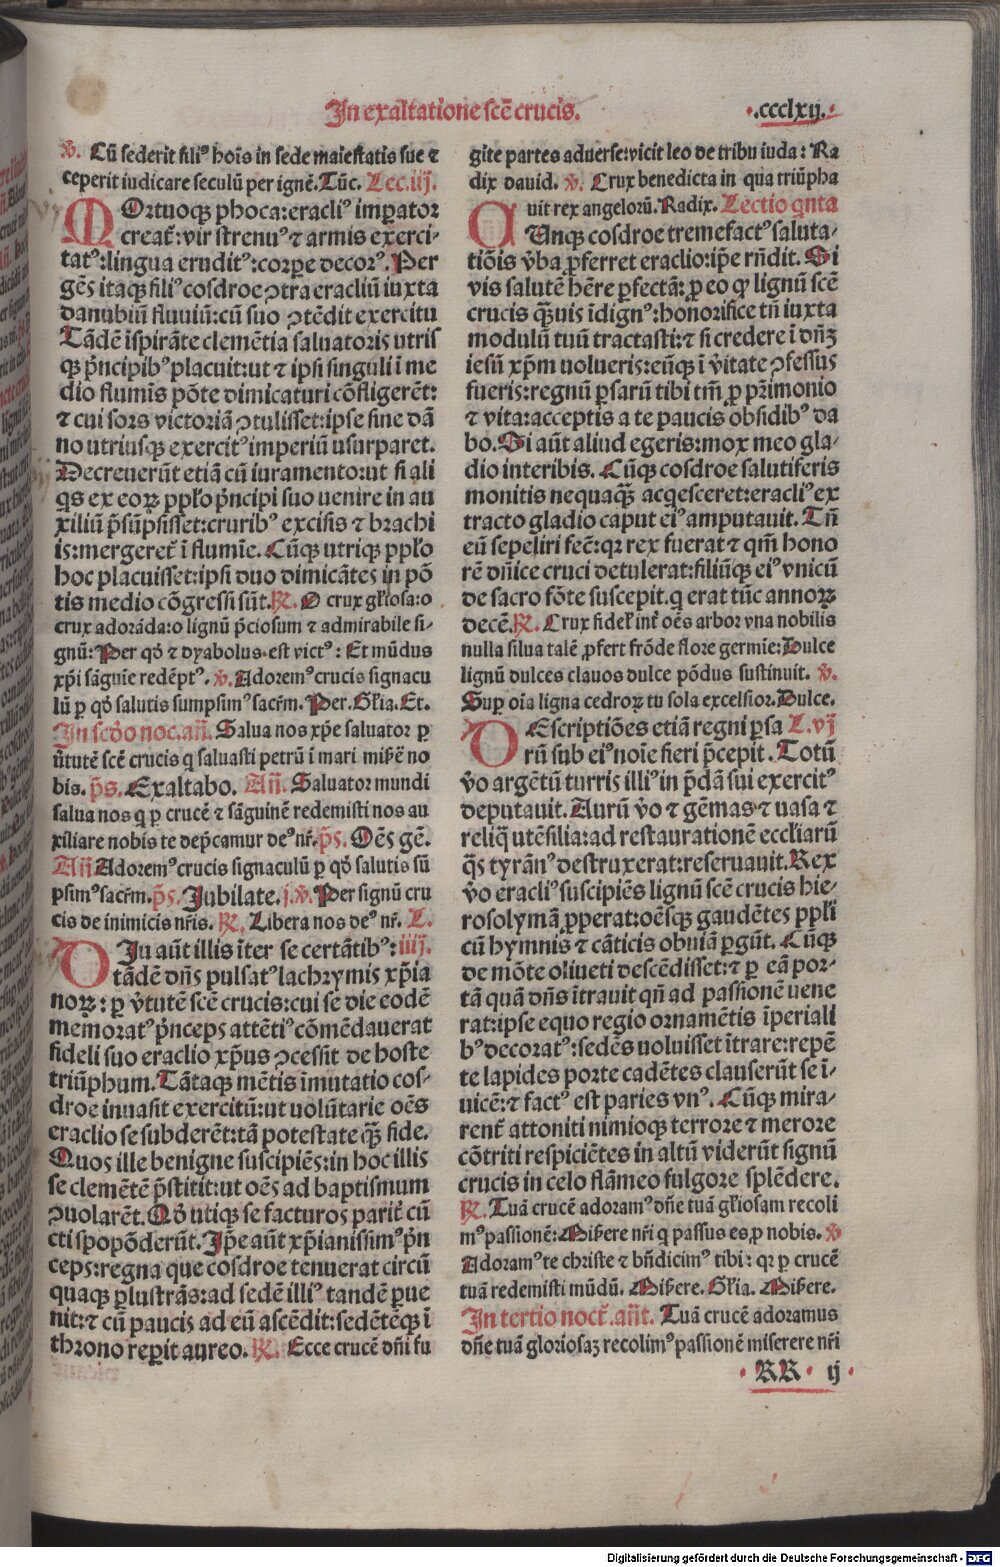 In exaltatione scē crucis.
.ccclxij.
℣. Cū sederit filiꝰ hoīs in sede maiestatis sue ⁊
ceperit iudicare seculū per ignē. Tūc. Lec.iij.
MOrtuoqꝫ phoca: eracliꝰ imperator
creat̄: vir strenuꝰ ⁊ armis exerci-
tatꝰ: lingua eruditꝰ: corpe decorꝰ. Per
gēs itaqꝫ filiꝰ cosdroe ↄtra eracliū iuxta
danubiū fluuiū: cū suo ↄtēdit exercitu
Tādē īspirāte clemētia saluatoris utris
qꝫ p̄ncipibꝰ placuit: ut ⁊ ipsi singuli ī me
dio fluminis pōte dimicaturi cōfligerēt:
⁊ cui sors victoriā ↄtulisset: ipse sine dā
no utriusqꝫ exercitꝰ imperiū usurparet.
Decreuerūt etiā cū iuramento: ut si ali
qs ex eoꝝ ppło p̄ncipi suo venire in au
xiliū p̄sūpsisset: cruribꝰ excisis ⁊ brachi
is: mergeret̄ ī flumīe. Cūqꝫ utriqꝫ ppło
hoc placuisset: ipsi duo dimicātes in pō
tis medio cōgressi sūt. ℟. O crux głiosa: o
crux adorāda: o lignū p̄ciosum ⁊ admirabile si-
gnū: Per qđ ⁊ dyabolus est victꝰ: Et mūdus
xp̄i sāguīe redēptꝰ. ℣. Adoremꝰ crucis signacu
lū p qđ salutis sumpsimꝰ sacr̄m. Per. Głia. Et.
In scđo noc. añ. Salua nos xp̄e saluator p
v̄tutē scē crucis q saluasti petrū ī mari miẜe no
bis. p̄s. Exaltabo. Añ. Saluator mundi
salua nos q p crucē ⁊ sāguinē redemisti nos au
xiliare nobis te dep̄camur deꝰ nr̄. p̄s. Oēs gē.
Añ Adoremꝰ crucis signaculū p qđ salutis sū
psimꝰ sacr̄m. p̄s. Jubilate. j. ℣. Per signū cru
cis de inimicis nr̄is. ℟. Libera nos deꝰ nr̄. L.
DJu aūt illis īter se certātibꝰ: iiij.
tādē dn̄s pulsatꝰ lachrymis xp̄ia
noꝝ: p v̄tutē scē crucis: cui se die eodē
memoratꝰ p̄nceps attētiꝰ cōmēdauerat
fideli suo eraclio xp̄us ↄcessit de hoste
triūphum. Tātaqꝫ mētis īmutatio cos-
droe inuasit exercitū: ut volūtarie oēs
eraclio se subderēt: tā potestate qꝫ̄ fide.
Quos ille benigne suscipiēs: in hoc illis
se clemētē p̄stitit: ut oēs ad baptismum
ↄuolarēt. Qđ utiqꝫ se facturos parit̄ cū
cti spopōderūt. Ip̄e aūt xp̄ianissimꝰ p̄n
ceps: regna que cosdroe tenuerat circū
quaqꝫ plustrās: ad sedē illiꝰ tandē pue
nit: ⁊ cū paucis ad eū ascēdit: sedētēqꝫ ī
throno reperit aureo. ℟. Ecce crucē dn̄i fu
gite partes aduerse: vicit leo de tribu iuda: Ra
dix dauid. ℣. Crux benedicta in qua triūpha
uit rex angelorū. Radix. Lectio qnta
CUnqꝫ cosdroe tremefactꝰ saluta-
tiōis v̄ba ꝓferret eraclio: ip̄e rn̄dit. Si
vis salutē hēre pfectā: ꝓ eo ꝙ lignū scē
crucis qꝫ̄uis īdignꝰ: honorifice tn̄ iuxta
modulū tuū tractasti: ⁊ si credere ī dn̄ꝫ
iesū xp̄m volueris: eūqꝫ ī v̄itate ↄfessus
fueris: regnū psarū tibi tm̄ ꝓ pr̄imonio
⁊ vita: acceptis a te paucis obsidibꝰ da
bo. Si aūt aliud egeris: mox meo gla-
dio interibis. Cūqꝫ cosdroe salutiferis
monitis nequaqꝫ̄ acqesceret: eracliꝰ ex
tracto gladio caput eiꝰ amputauit. Tn̄
eū sepeliri fec̄: qꝛ rex fuerat ⁊ qm̄ hono
rē dn̄ice cruci detulerat: filiūqꝫ eiꝰ vnicū
de sacro fōte suscepit. q erat tūc annoꝝ
decē. ℟. Crux fidel̄ int̄ oēs arbor vna nobilis
nulla silua talē ꝓfert frōde flore germīe: Dulce
lignū dulces clauos dulce pōdus sustinuit. ℣.
Sup oīa ligna cedroꝝ tu sola excelsior. Dulce.
DEscriptiōes etiā regni psa L.vj
rū sub eiꝰ noīe fieri p̄cepit. Totū
v̄o argētū turris illiꝰ in p̄dā sui exercitꝰ
deputauit. Aurū v̄o ⁊ gēmas ⁊ vasa ⁊
reliq̄ utēsilia: ad restaurationē eccłiarū
q̄s tyrānꝰ destruxerat: reseruauit. Rex
v̄o eracliꝰ suscipiēs lignū scē crucis hie-
rosolymā ꝓperat: oēsqꝫ gaudētes ppłi
cū hymnis ⁊ cāticis obuiā pgūt. Cūqꝫ
de mōte oliueti descēdisset: ⁊ p eā por-
tā quā dn̄s ītrauit qn̄ ad passionē uene
rat: ipse equo regio ornamētis īperiali
bꝰ decoratꝰ: sedēs uoluisset ītrare: repē
te lapides porte cadētes clauserūt se ī-
uicē: ⁊ factꝰ est paries vnꝰ. Cūqꝫ mira-
rent̄ attoniti nimioqꝫ terrore ⁊ merore
cōtriti respiciētes in altū viderūt signū
crucis in celo flāmeo fulgore splēdere.
℟. Tuā crucē adoramꝰ dn̄e tuā głiosam recoli
mꝰ passionē: Miẜere nr̄i q passus es ꝓ nobis. ℣
Adoramꝰ te christe ⁊ bn̄dicimꝰ tibi: qꝛ p crucē
tuā redemisti mūdū. Miẜere. Głia. Miẜere.
In tertio noct̄. añt. Tuā crucē adoramus
dn̄e tuā gloriosaꝫ recolimꝰ passionē miserere nr̄i
RR ij
Digitalisierung gefördert durch die Deutsche Forschungsgemeinschaft - DFG